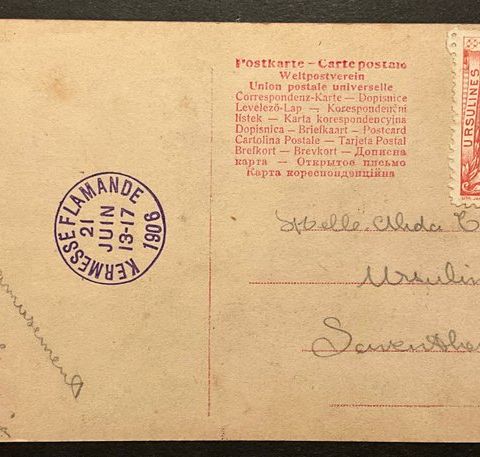 Postkarte – Carte postale
Weltpostverein
Union postale universelle
Correspondenz-Karte – Dopisnice
Levelező-Lap – Korespondenční
lístek – Karta korespondencyjna
Dopisnica – Briefkaart – Postcard
Cartolina Postale – Tarjeta Postal
Brefkort – Brevkort – Дописна
карта – Открытое письмо
Карта кореспонденційна
URSULINES
KERMESSE FLAMANDE
21
JUIN
13-17
1906
Melle Alida
Ursulin
amusement